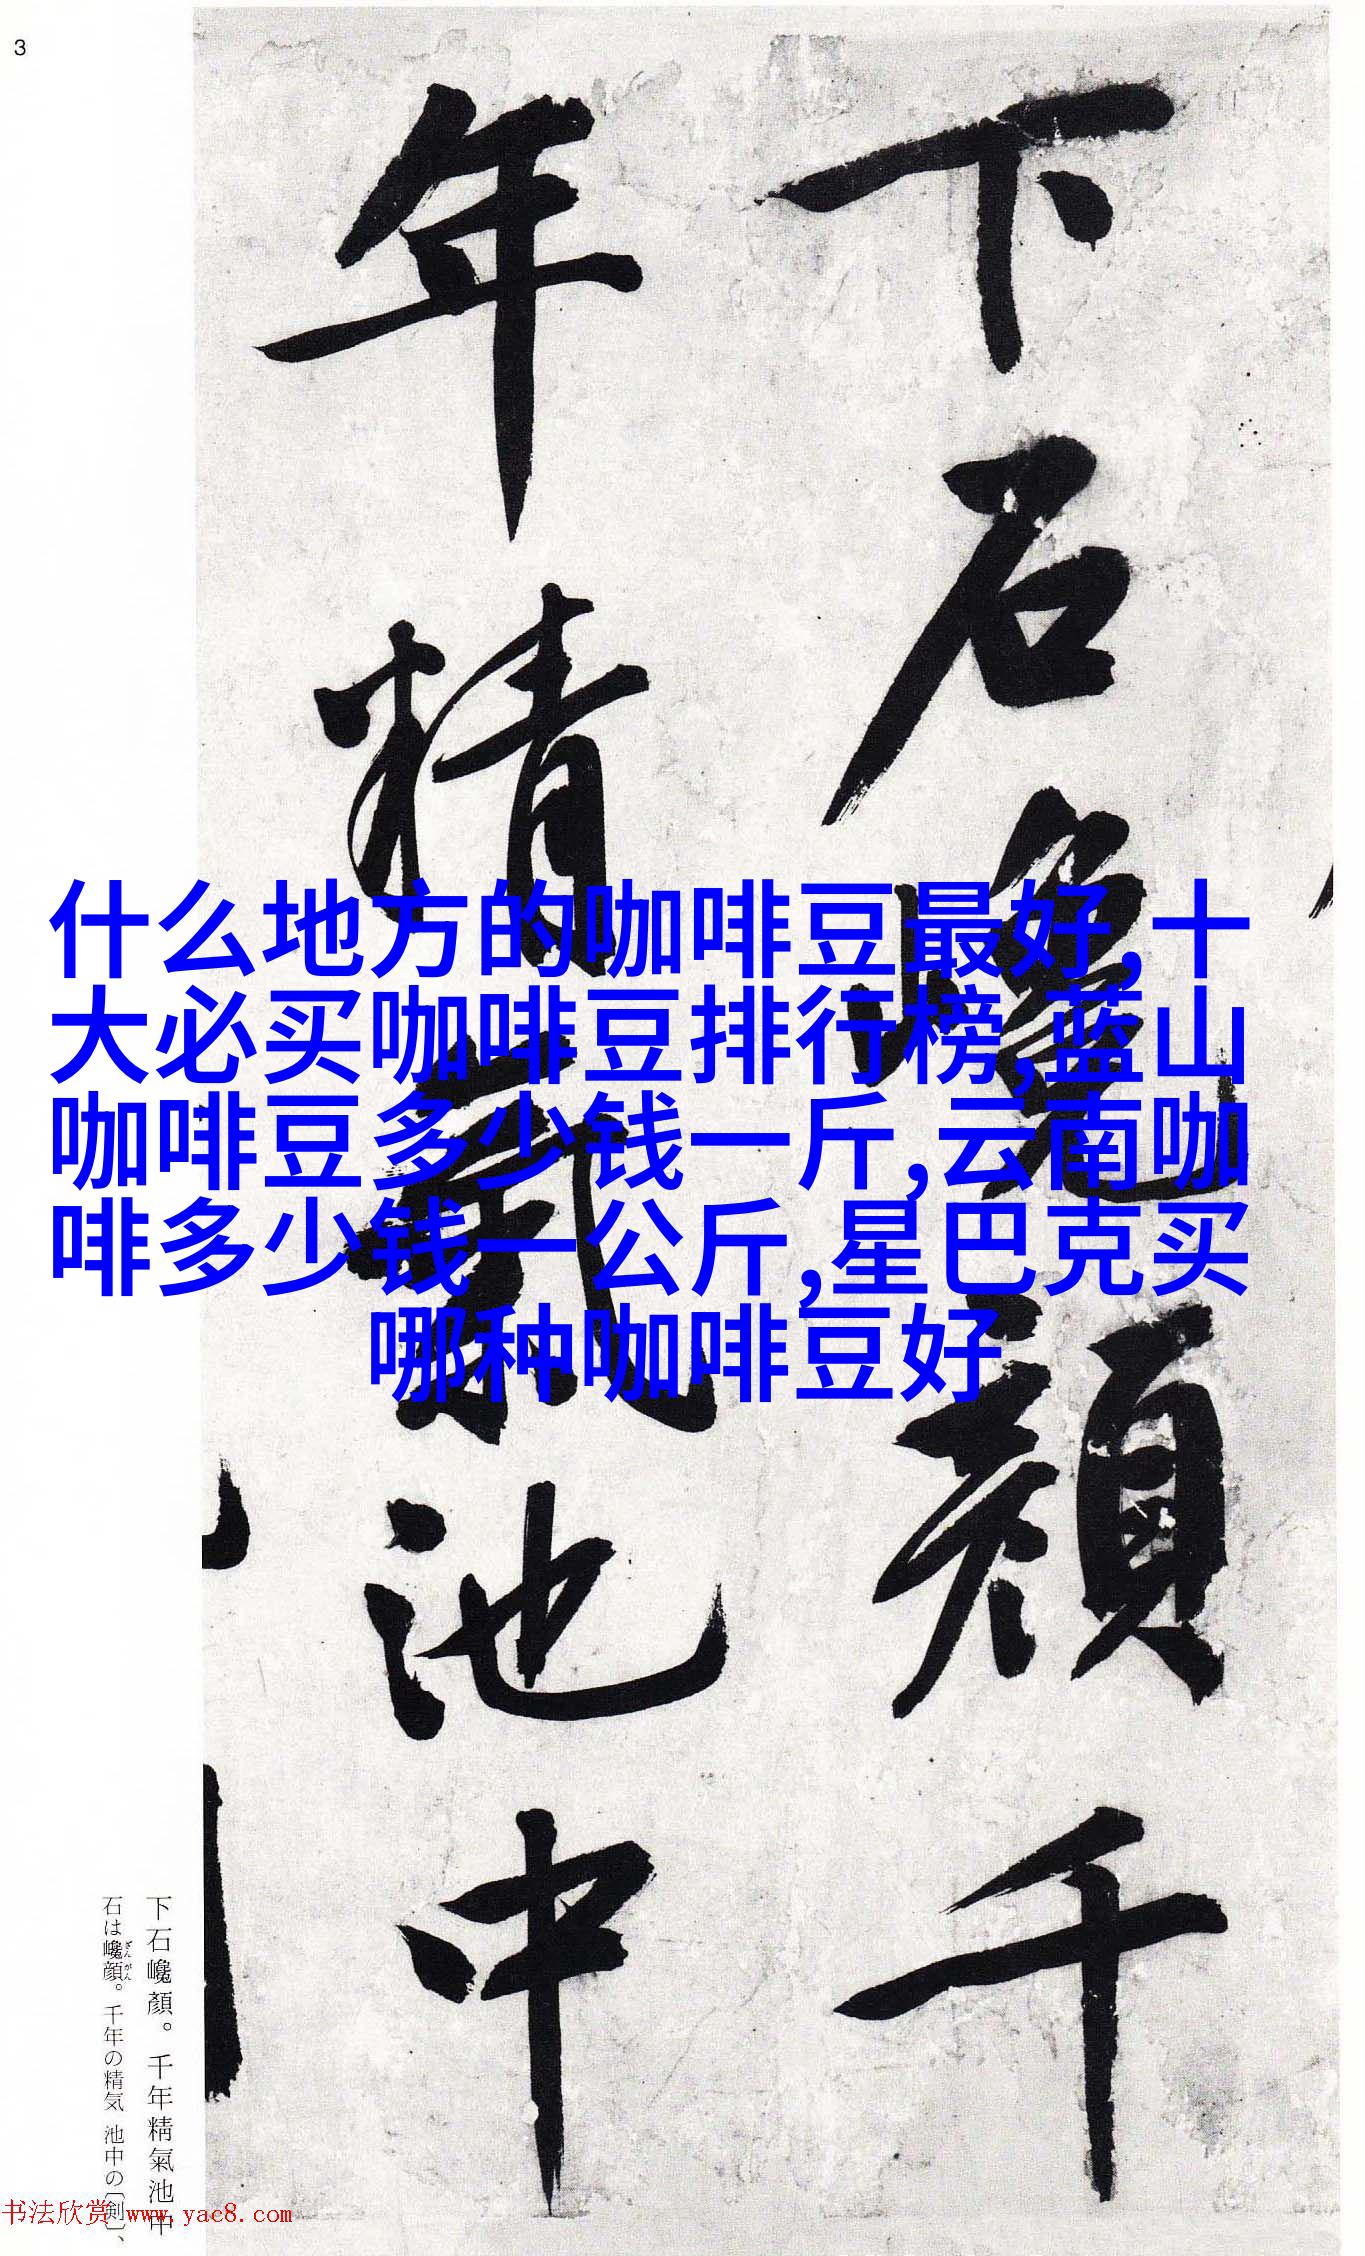 3
下石巉顏千
年精氣池中
什么地方的咖啡豆最好,十
大必买咖啡豆排行榜,蓝山
咖啡豆多少钱一斤,云南咖
啡多少钱一公斤,星巴克买
哪种咖啡豆好
下石巉顏。千年精氣池中
石は巉顔。千年の精気 池中の〔剣〕、
ざんがん
书法欣赏 www.yac8.com